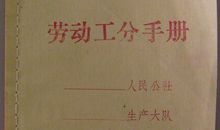 劳动工分手册
人民公社
生产大队